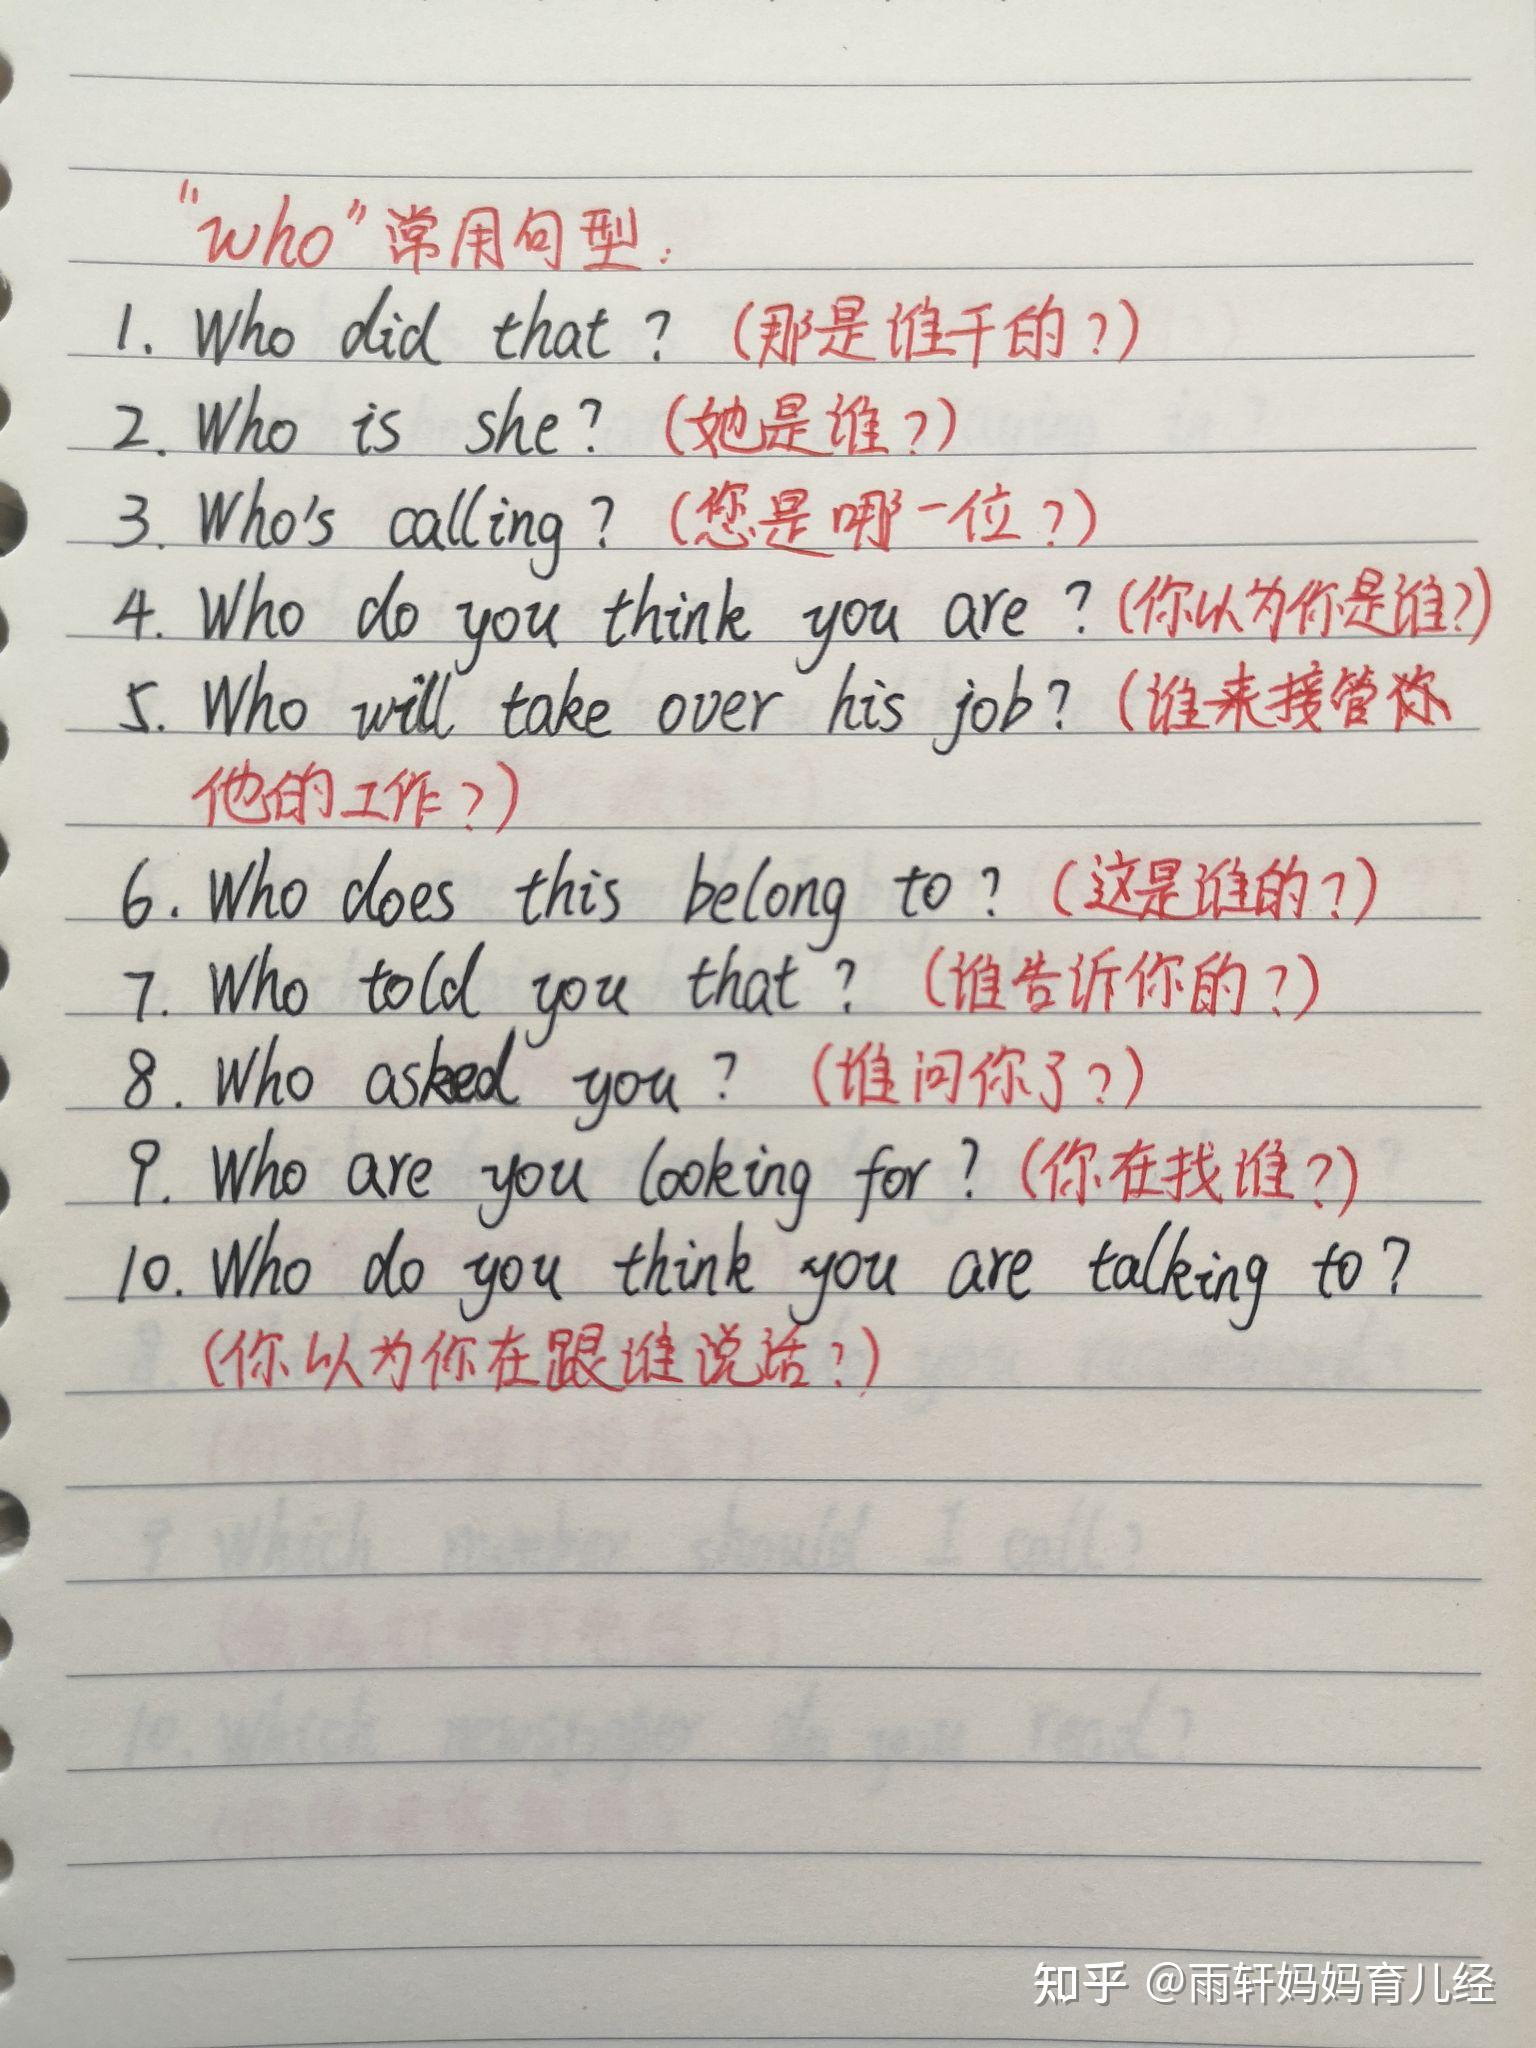 "who"常用句型:
1. Who did that? (那是谁干的?)
2. Who is she? (她是谁?)
3. Who's calling? (您是哪一位?)
4. Who do you think you are? (你以为你是谁?)
5. Who will take over his job? (谁来接管你
他的工作?)
6. Who does this belong to? (这是谁的?)
7. Who told you that? (谁告诉你的?)
8. Who asked you? (谁问你了?)
9. Who are you looking for? (你在找谁?)
10. Who do you think you are talking to?
(你以为你在跟谁说话?)
9 Which number should I call?
10. Which newspaper do you read?
知乎 @雨轩妈妈育儿经